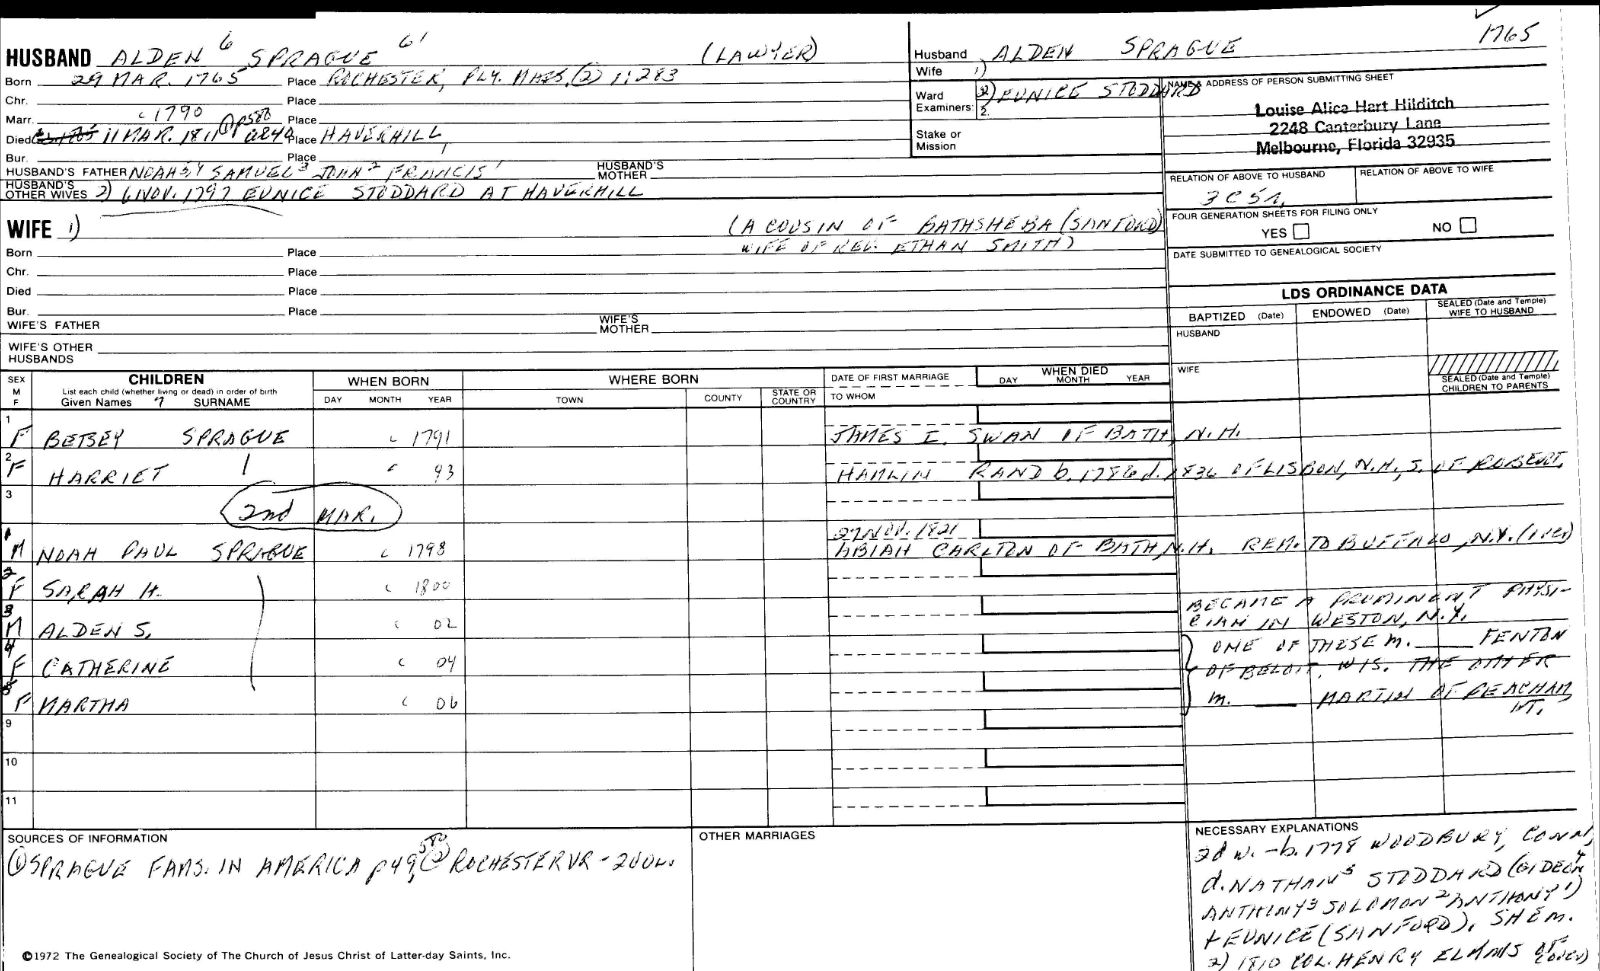 1765
HUSBAND ALDEN 6 SPRAGUE 61 (LAWYER)
Born 29 MAR. 1765 Place ROCHESTER, PLY. MASS. (2) 1:283
Chr. Place
Marr. c 1790 Place
Died 11 MAR. 1811 Place HAVERHILL,
Bur. Place
HUSBAND'S FATHER NOAH SAMUEL 3 JOHN 2 FRANCIS 1 HUSBAND'S MOTHER
HUSBAND'S OTHER WIVES 2) 6 NOV. 1797 EUNICE STODDARD AT HAVERHILL
Husband ALDEN SPRAGUE
Wife 1)
2) EUNICE STODDARD
Ward
Examiners: 1.
2.
Stake or
Mission
NAME & ADDRESS OF PERSON SUBMITTING SHEET
Louise Alica Hart Hilditch
2248 Canterbury Lane
Melbourne, Florida 32935
RELATION OF ABOVE TO HUSBAND RELATION OF ABOVE TO WIFE
3C5r.
FOUR GENERATION SHEETS FOR FILING ONLY
YES NO
DATE SUBMITTED TO GENEALOGICAL SOCIETY
WIFE 1) (A COUSIN OF BATHSHEBA (SANFORD)
WIFE OF REV. ETHAN SMITH)
Born Place
Chr. Place
Died Place
Bur. Place
WIFE'S FATHER WIFE'S MOTHER
WIFE'S OTHER
HUSBANDS
LDS ORDINANCE DATA
BAPTIZED (Date) ENDOWED (Date) SEALED (Date and Temple) WIFE TO HUSBAND
HUSBAND
WIFE
SEALED (Date and Temple)
CHILDREN TO PARENTS
SEX M F CHILDREN WHEN BORN WHERE BORN DATE OF FIRST MARRIAGE WHEN DIED
List each child (whether living or dead) in order of birth
Given Names 7 SURNAME DAY MONTH YEAR TOWN COUNTY STATE OR COUNTRY TO WHOM DAY MONTH YEAR
1
F BETSEY SPRAGUE c 1791 JAMES I. SWAN OF BATH, N.H.
2
F HARRIET c 93 HAMLIN RAND b. 1786 d. 1836 OF LISBON, N.H., S. OF ROBERT,
3
2nd MAR.
27 NOV. 1821
1
M NOAH PAUL SPRAGUE c 1798 ABIAH CARLTON OF BATH, N.H. REM. TO BUFFALO, N.Y.
2
F SARAH H. c 1800
3
M ALDEN S. c 02 BECAME A PROMINENT PHYSI-
CIAN IN WESTON, N.Y.
4
F CATHERINE c 04 ONE OF THESE m. FENTON
OF BELOIT, WIS. THE OTHER
5
F MARTHA c 06 m. MARTIN OF PEACHAM,
VT.
9
10
11
SOURCES OF INFORMATION
(1) SPRAGUE FAMS. IN AMERICA p 49, 580 (2) ROCHESTER VR - 200L.
OTHER MARRIAGES
NECESSARY EXPLANATIONS
2d W. - b. 1778 WOODBURY, CONN,
d. NATHAN 5 STODDARD (GIDEON 4
ANTHONY 3 SOLOMON 2 ANTHONY 1)
+ EUNICE (SANFORD), SHE m.
2) 1810 COL. HENRY ELMMS OF
©1972 The Genealogical Society of The Church of Jesus Christ of Latter-day Saints, Inc.